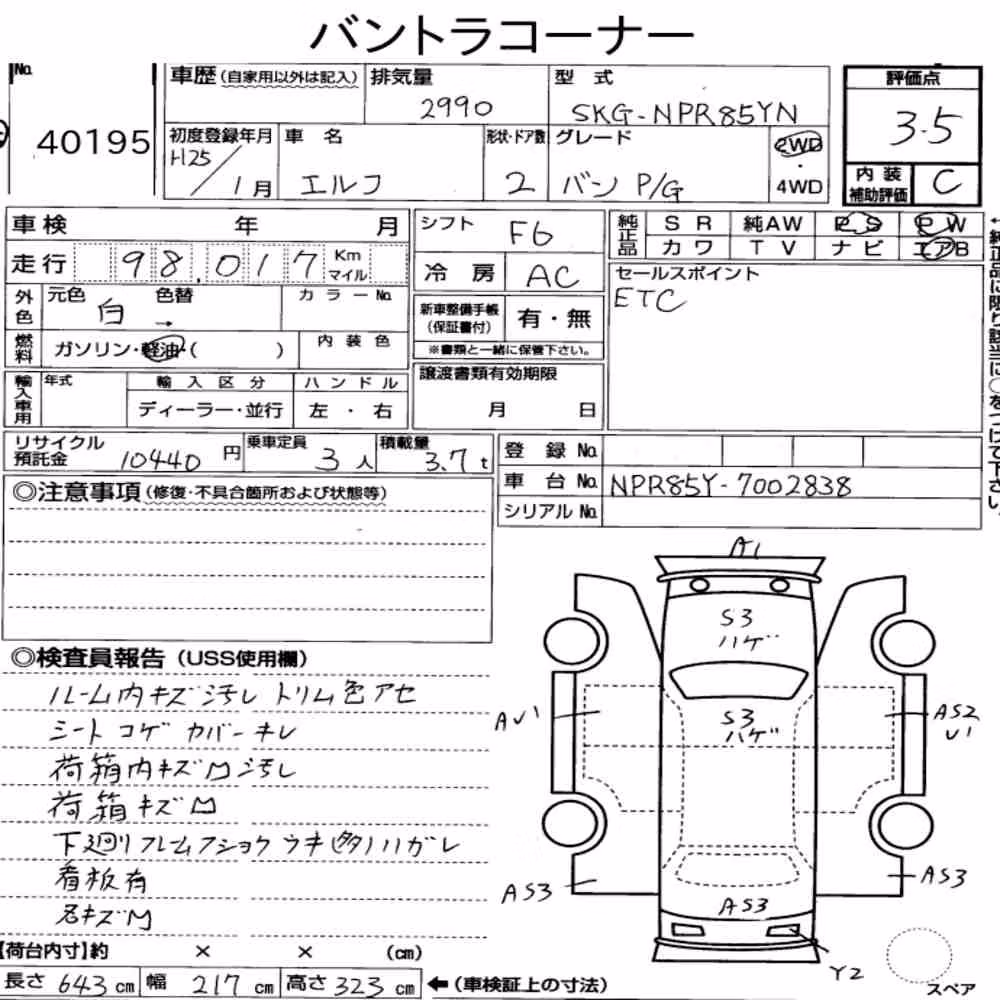 バントラコーナー
No.
40195
車歴(自家用以外は記入)
排気量
2990
型 式
SKG-NPR85YN
評価点
3.5
初度登録年月
H25/1月
車 名
エルフ
形状・ドア数
2
グレード
バン P/G
2WD
・
4WD
内装
補助評価
C
車検 年 月
走行 98,017 Km
マイル
シフト
F6
冷 房
AC
純正品
SR 純AW PS PW
カワ TV ナビ エアB
←純正品に限り該当に○をつけて下さい。
外色
元色 色替
白 →
カラーNo.
燃料
ガソリン・軽油・( )
内装色
新車整備手帳
(保証書付)
有・無
※書類と一緒に保管下さい。
セールスポイント
ETC
輸入車用
年式
輸入区分
ディーラー・並行
ハンドル
左・右
譲渡書類有効期限
月 日
リサイクル
預託金
10440円
乗車定員
3人
積載量
3.7t
登 録 No.
車 台 No. NPR85Y-7002838
シリアルNo.
◎注意事項(修復・不具合箇所および状態等)
◎検査員報告(USS使用欄)
ルーム内キズ汚レ トリム色アセ
シートコゲ カバーキレ
荷箱内キズ凹汚レ
荷箱キズ凹
下廻リフレームフショク ウキ(多)ハガレ
看板有
名キズ凹
A1
S3
ハゲ
S3
ハゲ
AU1
AS2
U1
AS3
AS3
AS3
Y2
スペア
【荷台内寸】約 × × (cm)
長さ 643 cm 幅 217 cm 高さ 323 cm ←(車検証上の寸法)